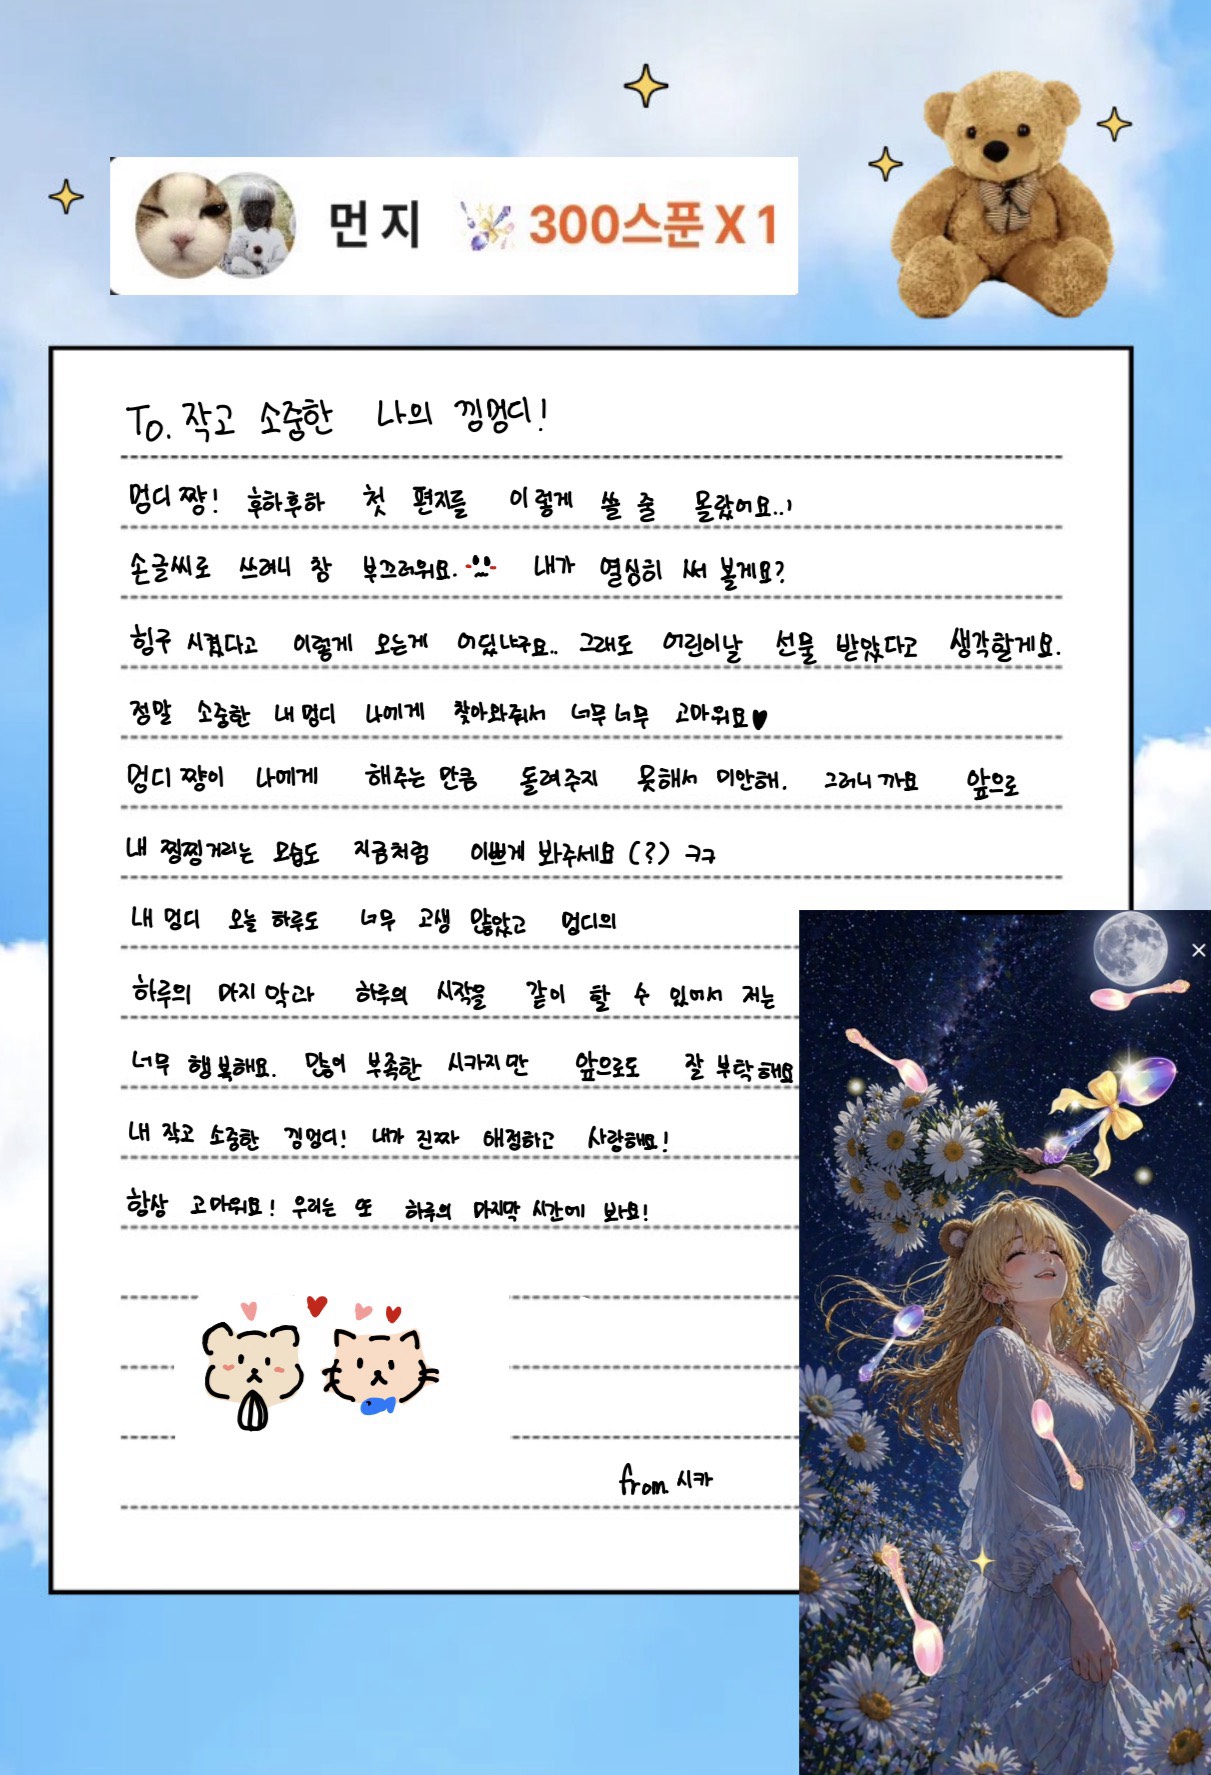 먼지 300스푼 X 1
To. 작고 소중한 나의 낌멍디!
멍디 쨩! 후하후하 첫 편지를 이렇게 쓸 줄 몰랐어요..!
손글씨로 쓰려니 참 부끄러워요. 내가 열심히 써 볼게요?
힝구 시켰다고 이렇게 오는게 어딨냐구요.. 그래도 어린이날 선물 받았다고 생각할게요.
정말 소중한 내 멍디 나에게 찾아와줘서 너무 너무 고마워요♥
멍디 쨩이 나에게 해주는 만큼 돌려주지 못해서 미안해. 그러니까요 앞으로
내 찡찡거리는 모습도 지금처럼 이쁘게 봐주세요 (?) ㅋㅋ
내 멍디 오늘 하루도 너무 고생 많았고 멍디의
하루의 마지막과 하루의 시작을 같이 할 수 있어서 저는
너무 행복해요. 많이 부족한 시카지만 앞으로도 잘 부탁해요
내 작고 소중한 낌멍디! 내가 진짜 애정하고 사랑해요!
항상 고마워요! 우리는 또 하루의 마지막 시간에 봐요!
from 시카